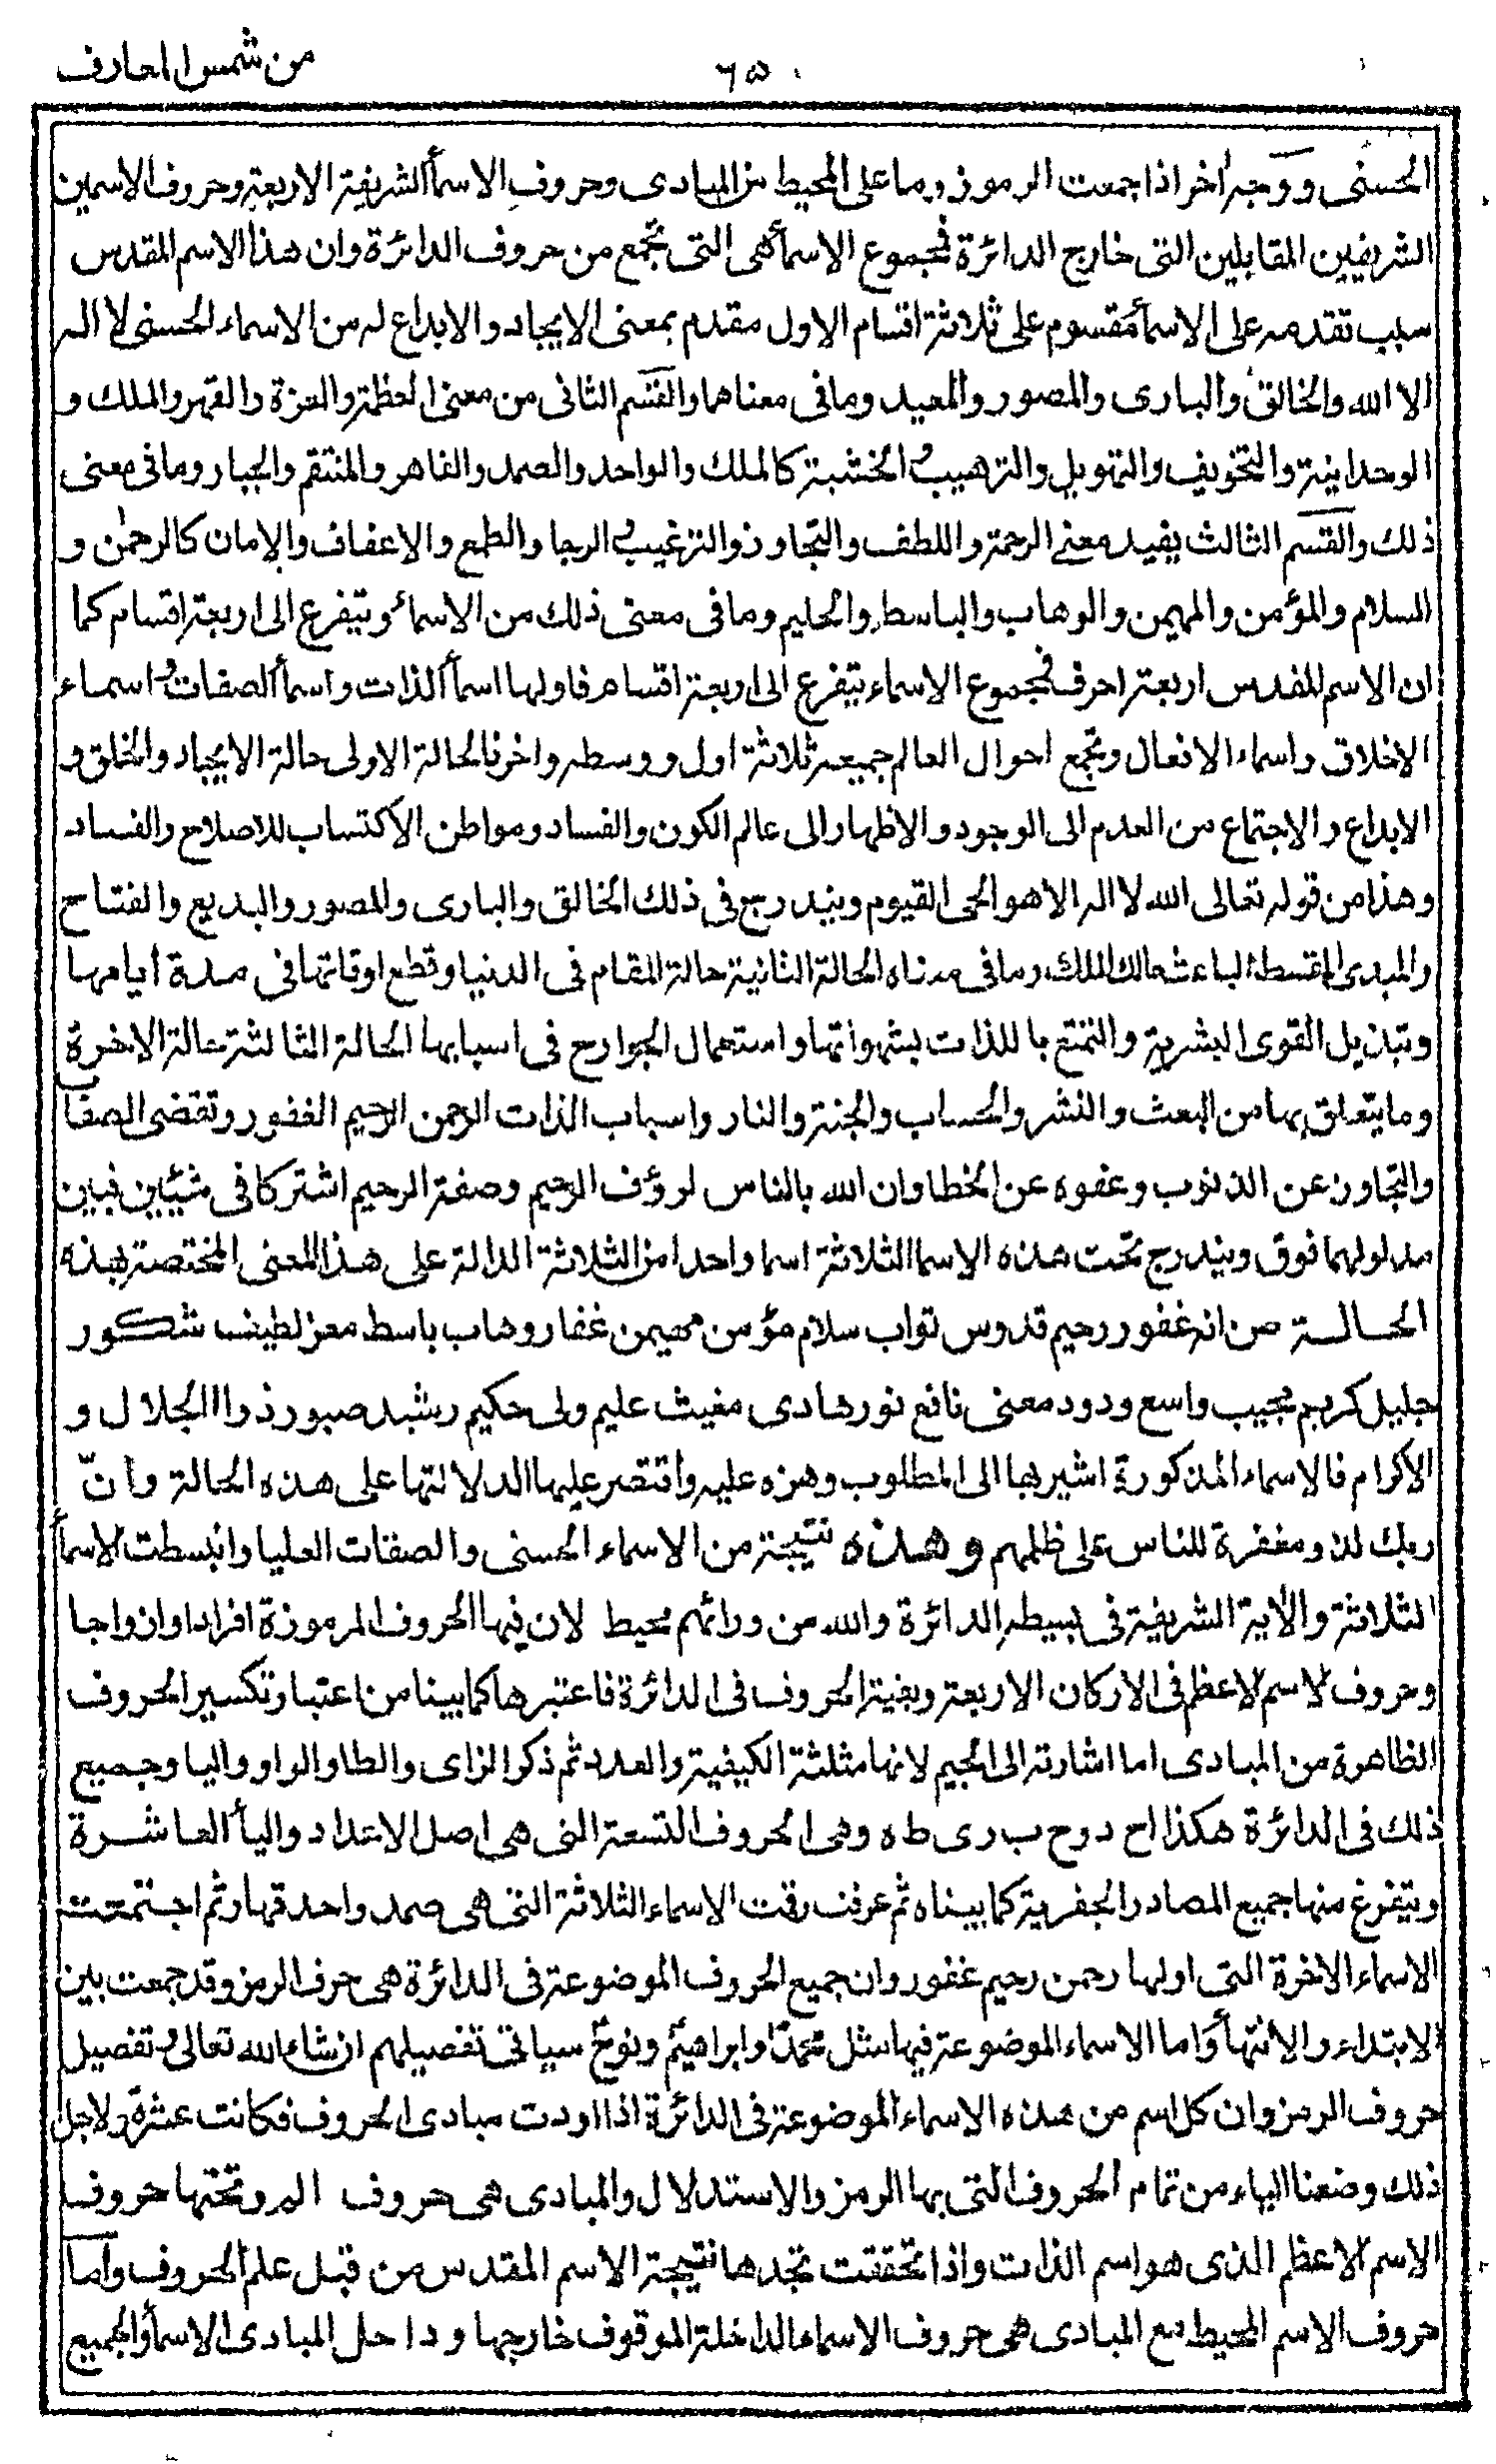 من شمس المعارف
الحسنى ووجه أخر اذا جمعت الرموز وما على المحيط من المبادى وحروف الاسمأ الشريفة الاربعة وحروف الاسمين
الشريفين المقابلين التى خارج الدائرة فمجموع الاسمأ هى التى تجمع من حروف الدائرة وان هذا الاسم المقدس
سبب تقدمه على الاسمأ مقسوم على ثلاثة اقسام الاول مقدم بمعنى الايجاد والابداع له من الاسماء الحسنى لا اله
الا الله والخالق والبارى والمصور والمعيد وما فى معناها والقسم الثانى من معنى العظمة والعزة والقهر والملك و
الوحدانية والتخويف والتهويل والترهيب والخشية كالملك والواحد والصمد والقاهر والمنتقم والجبار وما فى معنى
ذلك والقسم الثالث يفيد معنى الرحمة واللطف والتجاوز والترغيب والرجا والطمع والاعفاف والامان كالرحمن و
السلام والمؤمن والمهيمن والوهاب والباسط والحليم وما فى معنى ذلك من الاسماء ويتفرع الى اربعة اقسام كما
ان الاسم المقدس اربعة احرف فمجموع الاسماء يتفرع الى اربعة اقسام فاولها اسمأ الذات واسمأ الصفات واسماء
الاخلاق واسماء الافعال وتجمع احوال العالم جميعه ثلاثة اول ووسط واخر فالحالة الاولى حالة الايجاد والخلق و
الابداع والاجتماع من العدم الى الوجود والاظهار الى عالم الكون والفساد ومواطن الاكتساب للاصلاح والفساد
وهذا من قوله تعالى الله لا اله الا هو الحى القيوم ويندرج فى ذلك الخالق والبارى والمصور والبديع والفتاح
والمبدى المقسط الباعث مالك الملك وما فى معناه الحالة الثانية حالة المقام فى الدنيا وقطع اوقاتها فى مدة ايامها
وتبديل القوى البشرية والتمتع باللذات بشهواتها واستعمال الجوارح فى اسبابها الحالة الثالثة حالة الاخرة
وما يتعلق بها من البعث والنشر والحساب والجنة والنار واسباب الذات الرحمن الرحيم الغفور وتقضى الصفات
والتجاوز عن الذنوب وعفوه عن الخطا وان الله بالناس لرؤف الرحيم وصفة الرحيم اشتركا فى شيئين فبين
مدلولهما فوق ويندرج تحت هذه الاسما الثلاثة اسما واحدا من الثلاثة الدالة على هذا المعنى المختصة بهذه
الحالة من انه غفور رحيم قدوس تواب سلام مؤمن مهيمن غفار وهاب باسط معز لطيف شكور
جليل كريم مجيب واسع ودود معنى نافع نور هادى مغيث عليم ولى حكيم رشيد صبور ذوا الجلال و
الاكرام فالاسماء المذكورة اشير بها الى المطلوب وهزه عليه واقتصر عليها الدلالتها على هذه الحالة وانّ
ربك لذو مغفرة للناس على ظلمهم وهذه نتيجة من الاسماء الحسنى والصفات العليا وانبسطت الاسمأ
الثلاثة والاية الشريفة فى بسيطه الدائرة والله من ورائهم محيط لان فيها الحروف المرموزة افرادا وازواجا
وحروف الاسم الاعظم فى الاركان الاربعة وبقية الحروف فى الدائرة فاعتبرها كما بينا من اعتبار تكسير الحروف
الظاهرة من المبادى اما اشارته الى الجيم لانها مثلثة الكيفية والعدد ثم ذكر الزاى والطا والواو واليا وجميع
ذلك فى الدائرة هكذا اح د وح ب ر ى ط ه وهى الحروف التسعة التى هى اصل الاعداد واليأ العاشرة
ويتفرغ منها جميع المصادر الجفرية كما بيناه ثم عرفت رقت الاسماء الثلاثة التى هى صمد واحد قهار ثم اجتمعت
الاسماء الاخرة التى اولها رحمن رحيم غفور وان جميع الحروف الموضوعة فى الدائرة هى حرف الرمز وقد جمعت بين
الابتداء والانتهأ واما الاسماء الموضوعة فيها مثل محمد وابراهيم ونوح سياتى تفصيلهم ان شاء الله تعالى وتفصيل
حروف الرمز وان كل اسم من هذه الاسماء الموضوعة فى الدائرة اذا اودت مبادى الحروف فكانت عشرة ولاجل
ذلك وضعنا الياء من تمام الحروف التى بها الرمز والاستدلال والمبادى هى حروف اليه وتحتها حروف
الاسم الاعظم الذى هو اسم الذات واذا تحققت تجدها نتيجة الاسم المقدس من قبل علم الحروف واما
حروف الاسم المحيط مع المبادى هى حروف الاسماء الداخلة الموقوف خارجها وداخل المبادى الاسمأ والجميع